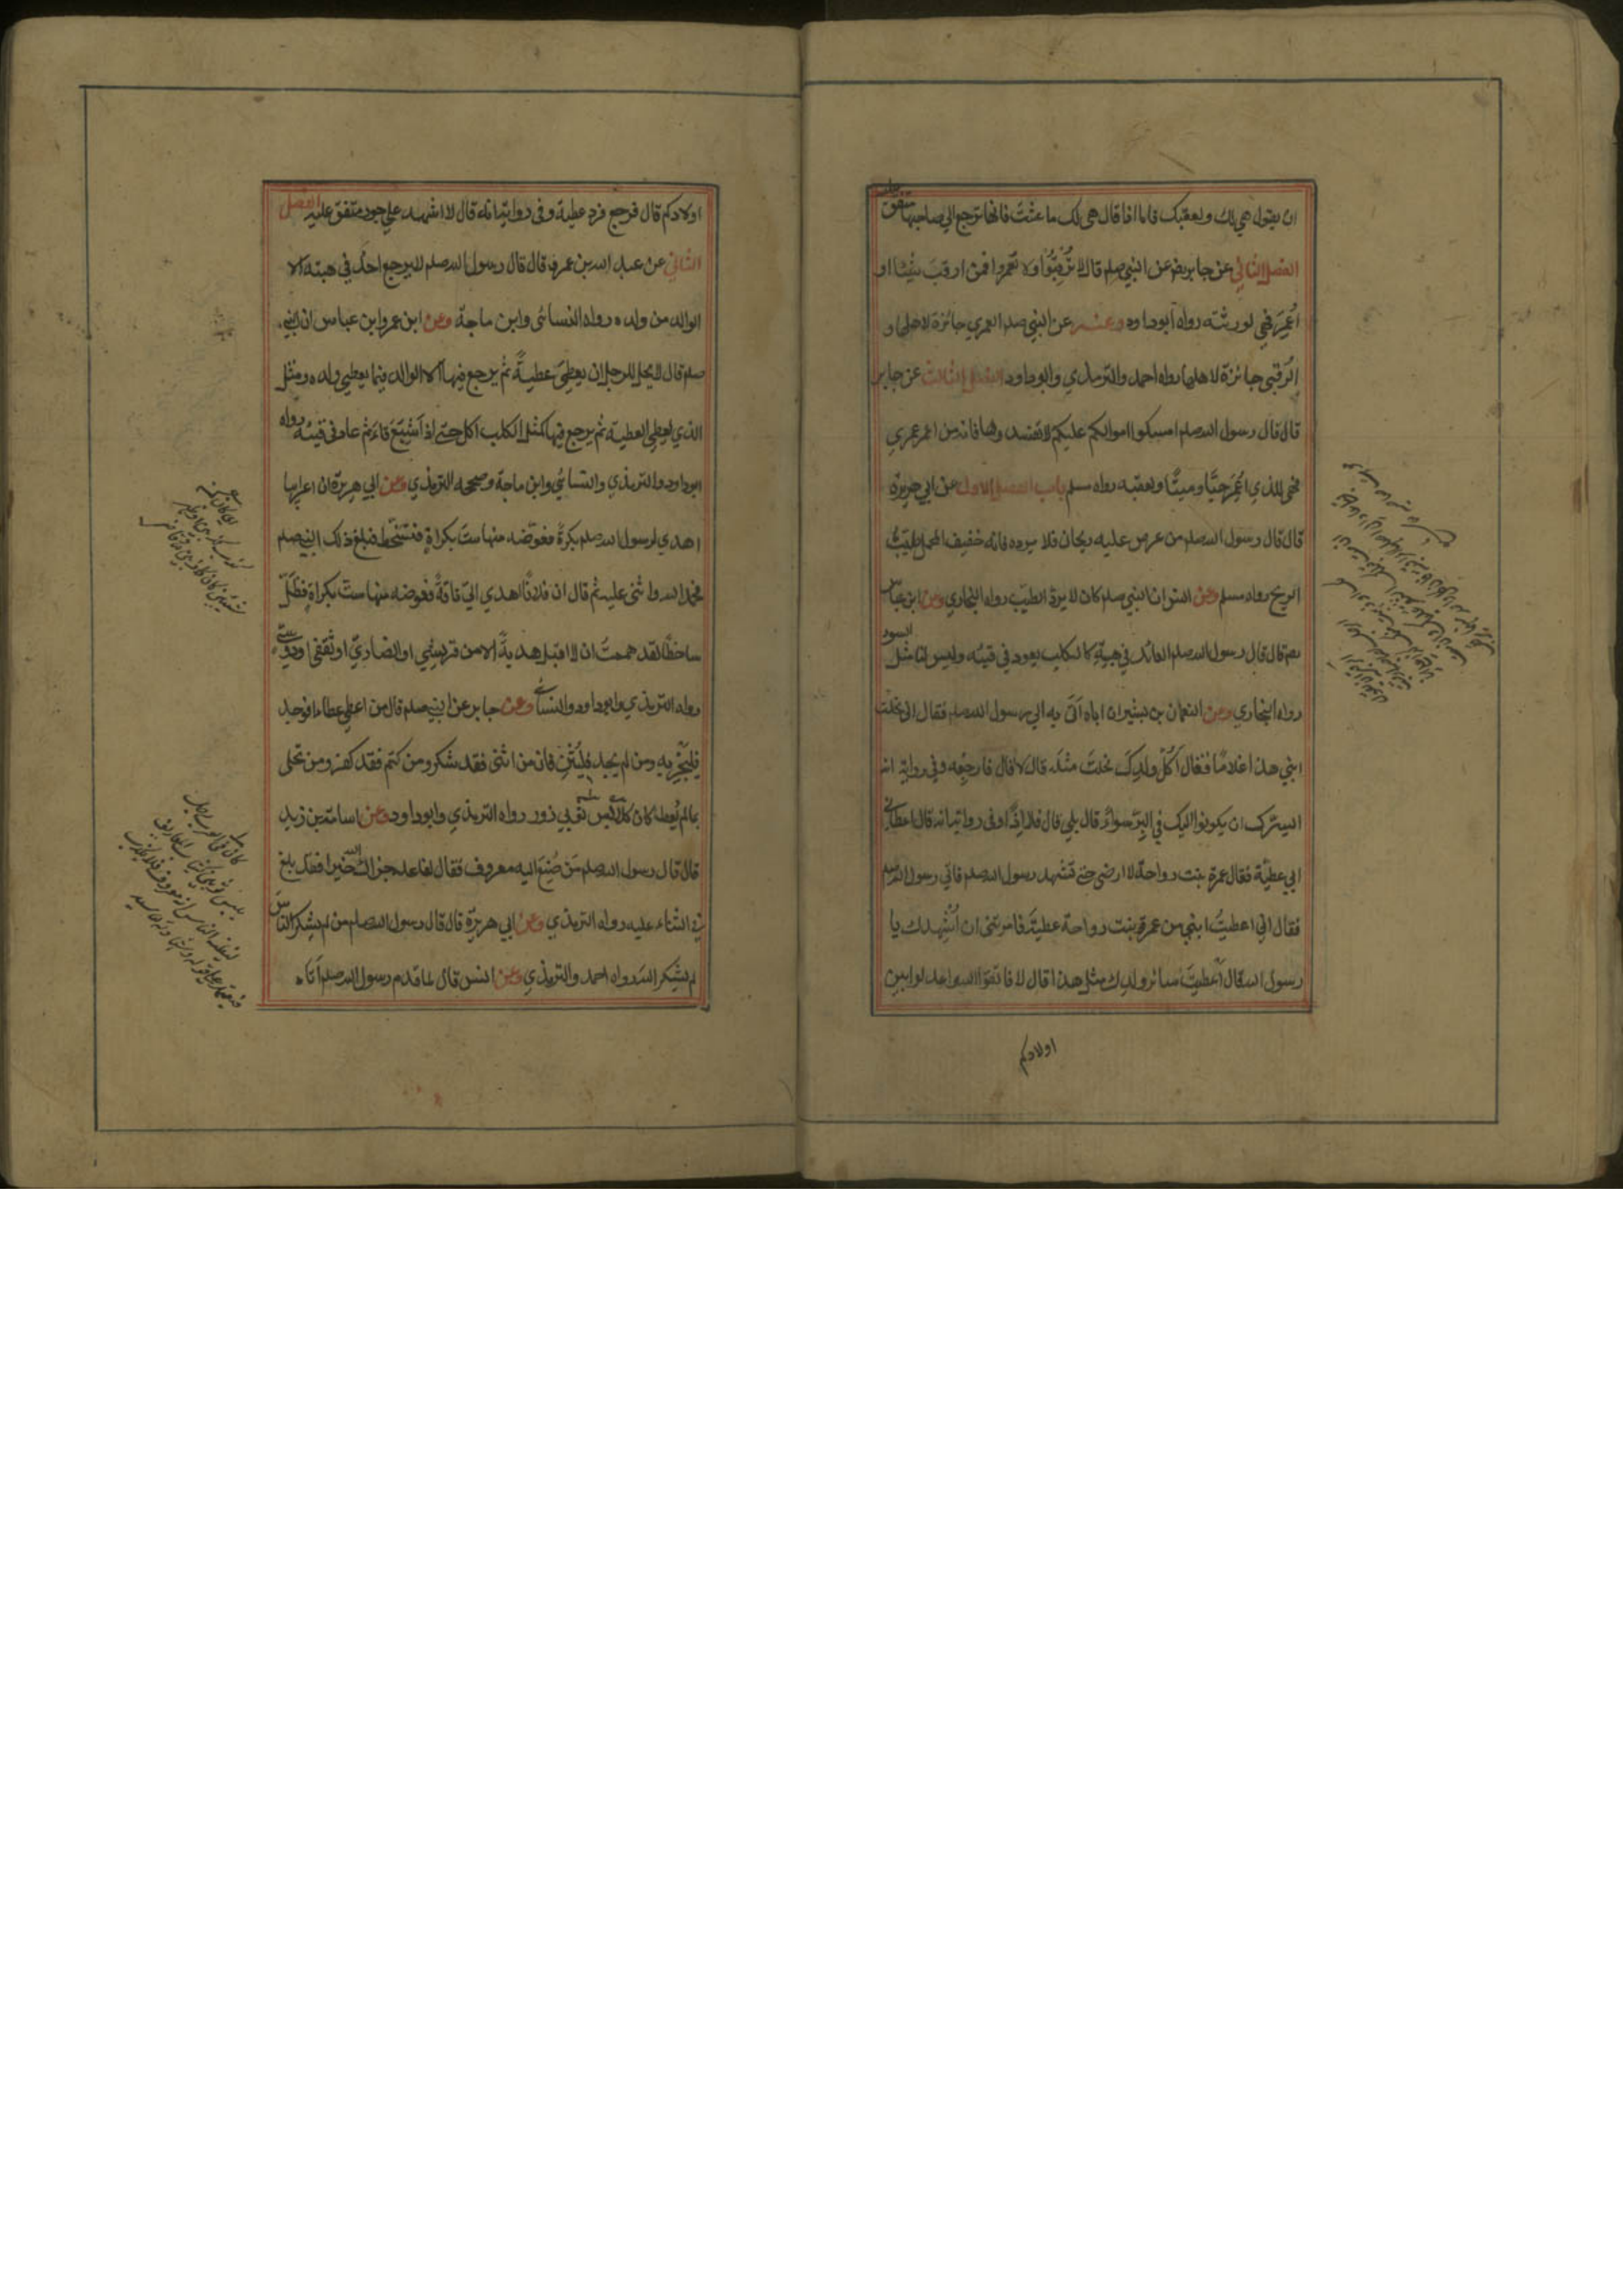 ان يقول هي لك ولعقبك فاما اذا قال هي لك ما عشت فانها ترجع الي صاحبها متفق عليه
الفصل الثاني عن جابر رض عن النبي صلم قال لا تُرْقِبُوْا ولا تعمروا فمن ارقب شيئا او
اُعْمِرَ فهي لورثته رواه ابوداود وعنه عن النبي صلم العمري جائزة لاهلها و
الرُّقبى جائزة لاهلها رواه احمد والترمذي وابوداود الفصل الثالث عن جابر
قال قال رسول الله صلم امسكوا اموالكم عليكم لا تفسدوها فانه من اعمر عمري
فهي للذي اُعْمِرَ حيًّا وميتًا ولعقبه رواه مسلم باب الفصل الاول عن ابي هريرة
قال قال رسول الله صلم من عرض عليه ريحان فلا يرده فانه خفيف المحمل طيّبُ
الريح رواه مسلم وعن انس ان النبي صلم كان لا يردّ الطيب رواه البخاري وعن ابن عباس
رضم قال قال رسول الله صلم العائد في هبتِه كالكلب يعود في قيئه وليس لنا مثل السوء
رواه البخاري وعن النعمان بن بشير ان اباه اَتَى به الي رسول الله صلم فقال اني نحلت
ابني هذا غلامًا فقال اَكُلَّ ولدِكَ نحلتَ مثلَه قال لا قال فارجِعه وفي رواية انه
ايسرّك ان يكونوا اليك في البِرّ سواءً قال بلي قال فلا اِذًا وفي رواية انه قال اعطاني
ابي عطيّة فقال عمرة بنت رواحة لا ارضى حتى تشهد رسول الله صلم فاتي رسول الله صلم
فقال اني اعطيتُ ابني من عمرة بنت رواحة عطيةً فامرتنى ان اُشْهِدك يا
رسول الله قال اَعطيتَ سائر ولدك مثل هذا قال لا قال فاتقوا الله واعدلوا بين
اولادكم
اولادكم قال فرجع فرد عطيته وفى رواية انه قال لا اشهد علي جور متفق عليه الفصل
الثاني عن عبد الله بن عمرو قال قال رسول الله صلم لا يرجع احدٌ في هبته الا
الوالد من ولده رواه النسائى وابن ماجة وعن ابن عمر وابن عباس ان النبي
صلم قال لا يحل للرجل ان يعطِيَ عطيةً ثم يرجع فيها الا الوالد فيما يعطي ولده ومثل
الذي يعطي العطية ثم يرجع فيها كمثل الكلب اكل حتى اذا شبِع قاءَ ثم عاد فى قيئه رواه
ابوداود والترمذي والنسائي وابن ماجة وصححه الترمذي وعن ابي هريرة ان اعرابيا
اهدي لرسول الله صلم بكرةً فعوّضه منها ستَّ بكراتٍ فتسَخَّط فبلغ ذلك النبي صلم
فحمد الله واثنى عليه ثم قال ان فلانًا اهدي اليّ ناقةً فعوضته منها ستّ بكراتٍ فظَلَّ
ساخطًا لقد هممتُ ان لا اقبل هديةً الا من قريشي او انصاريّ او ثقفى او دوسيّ
رواه الترمذي وابوداود والنسائي وعن جابر عن النبي صلم قال من اعطي عطاءا فوجد
فليَجْزِ به ومن لم يجد فليُثْنِ فان من اثنى فقد شكر ومن كتم فقد كفر ومن تحلى
بما لم يُعطَ كان كلابس ثوبي زور رواه الترمذي وابوداود وعن اسامة بن زيد
قال قال رسول الله صلم من صُنِعَ اليه معروف فقال لفاعله جزاك الله خيرا فقد بلغ
في الثناء عليه رواه الترمذي وعن ابي هريرة قال قال رسول الله صلم من لم يشكر الناسَ
لم يشكر الله رواه احمد والترمذي وعن انس قال لما قدم رسول الله صلم اتاه